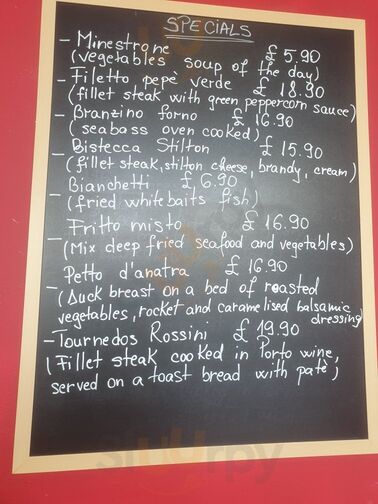 SPECIALS
- Minestrone £ 5.90
(vegetables soup of the day)
- Filetto pepe verde £ 18.90
(fillet steak with green peppercorn sauce)
- Branzino forno £ 16.90
(seabass oven cooked)
- Bistecca Stilton £ 15.90
(fillet steak, stilton cheese, brandy, cream)
- Bianchetti £ 6.90
(fried whitebaits fish)
- Fritto misto £ 16.90
(Mix deep fried seafood and vegetables)
- Petto d'anatra £ 16.90
(Duck breast on a bed of roasted
vegetables, rocket and caramelised balsamic
dressing)
- Tournedos Rossini £ 19.90
(Fillet steak cooked in Porto wine,
served on a toast bread with patè)
sluurpy